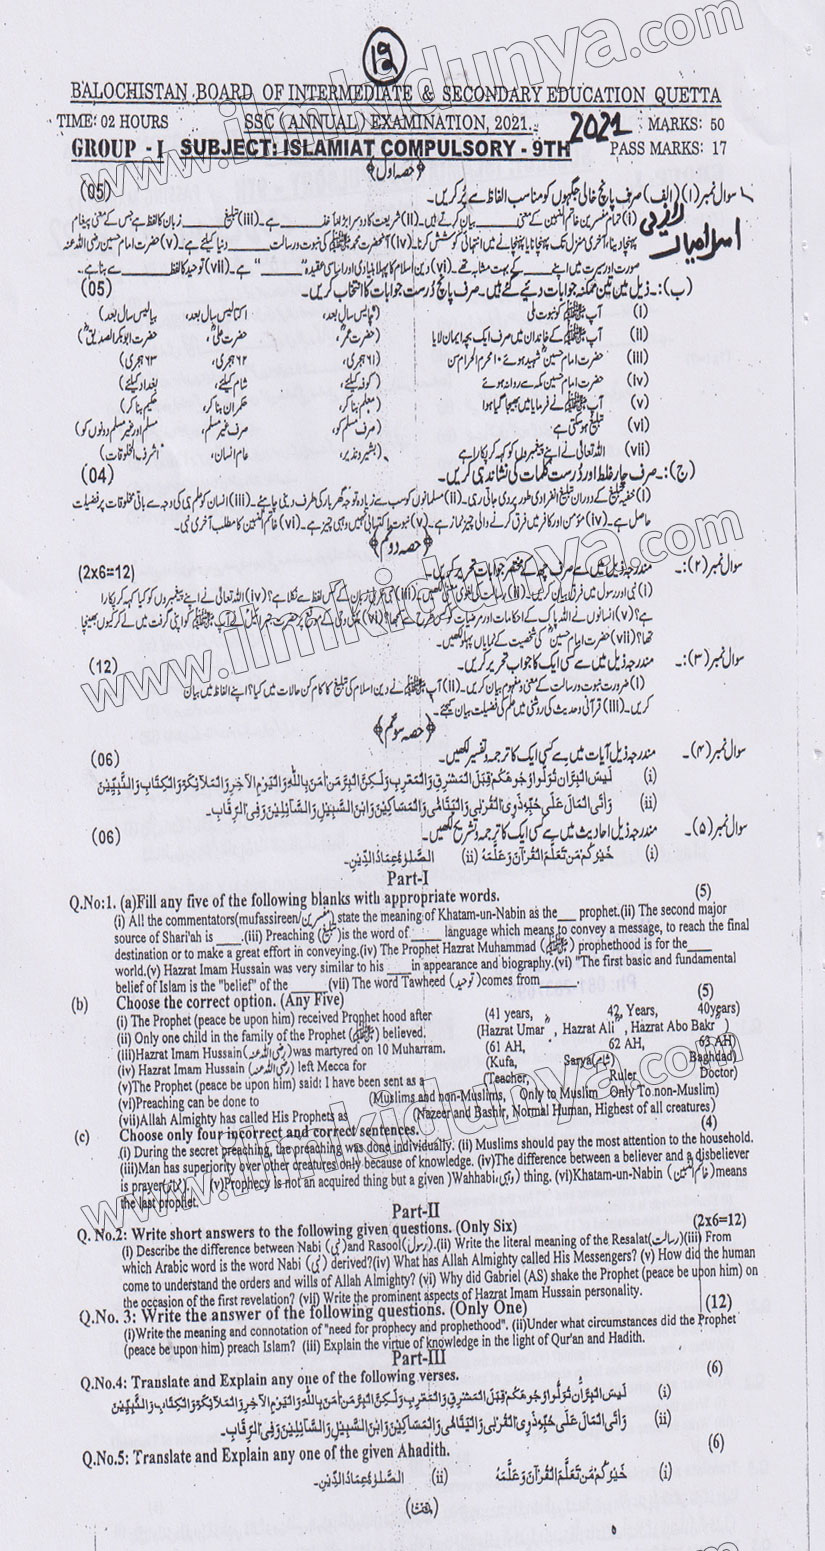 BALOCHISTAN BOARD OF INTERMEDIATE & SECONDARY EDUCATION QUETTA
TIME: 02 HOURS SSC (ANNUAL) EXAMINATION, 2021. 2021 MARKS: 50
GROUP - I SUBJECT: ISLAMIAT COMPULSORY - 9TH PASS MARKS: 17
﴿حصہ اول﴾
سوال نمبر (۱) (الف) صرف پانچ خالی جگہوں کو مناسب الفاظ سے پُر کریں۔ (05)
(i) تمام مفسرین خاتم النبیین کے معنی ____ بیان کرتے ہیں۔ (ii) شریعت کا دوسرا بڑا ماخذ ____ ہے۔ (iii) تبلیغ ____ زبان کا لفظ ہے جس کے معنی پیغام
پہنچا دینا، آخری منزل تک پہنچانا یا پہنچانے میں انتہائی کوشش کرنا۔ (iv) آنحضرت محمد ﷺ کی نبوت و رسالت ____ دنیا کیلئے ہے۔ (v) حضرت امام حسین رضی اللہ عنہ
صورت اور سیرت میں اپنے ____ کے بہت مشابہ تھے۔ (vi) دین اسلام کا پہلا بنیادی اور اساسی عقیدہ "____" ہے۔ (vii) توحید کا لفظ ____ سے بنا ہے۔
(ب):۔ ذیل میں تین ممکنہ جوابات دیئے گئے ہیں۔ صرف پانچ دُرست جوابات کا انتخاب کریں۔ (05)
(i) آپ ﷺ کو نبوت ملی (چالیس سال بعد، اکتالیس سال بعد، بیالیس سال بعد)
(ii) آپ ﷺ کے خاندان میں صرف ایک بچہ ایمان لایا (حضرت عمرؓ، حضرت علیؓ، حضرت ابوبکر الصدیقؓ)
(iii) حضرت امام حسینؓ شہید ہوئے ۱۰ محرم الحرام سن (۶۱ ہجری، ۶۲ ہجری، ۶۳ ہجری)
(iv) حضرت امام حسینؓ مکہ سے روانہ ہوئے (کوفہ کیلئے، شام کیلئے، بغداد کیلئے)
(v) آپ ﷺ نے فرمایا میں بھیجا گیا ہوا (معلم بنا کر، حکمران بنا کر، حکیم بنا کر)
(vi) تبلیغ ہو سکتی ہے (صرف مسلم کو، صرف غیر مسلم، مسلم اور غیر مسلم دونوں کو)
(vii) اللہ تعالیٰ نے اپنے پیغمبروں کو کہہ کر پکارا ہے (بشیر و نذیر، عام انسان، اشرف المخلوقات)
(ج):۔ صرف چار غلط اور دُرست کلمات کی نشاندہی کریں۔ (04)
(i) خفیہ تبلیغ کے دوران تبلیغ انفرادی طور پر دی جاتی رہی۔ (ii) مسلمانوں کو سب سے زیادہ توجہ گھر بار کی طرف دینی چاہئے۔ (iii) انسان کو علم ہی کی وجہ سے باقی مخلوقات پر فضیلت
حاصل ہے۔ (iv) مؤمن اور کافر میں فرق کرنے والی چیز نماز ہے۔ (v) نبوت اکتسابی نہیں وہبی چیز ہے۔ (vi) خاتم النبیین کا مطلب آخری نبی۔
﴿حصہ دوئم﴾
سوال نمبر (۲):۔ مندرجہ ذیل میں سے صرف چھ کے مختصر جوابات تحریر کریں۔ (2x6=12)
(i) نبی اور رسول میں فرق بیان کریں۔ (ii) رسالت کی لغوی معنی لکھیں۔ (iii) نبی عربی زبان کے کس لفظ سے نکلا ہے؟ (iv) اللہ تعالیٰ نے اپنے پیغمبروں کو کیا کہہ کر پکارا
ہے؟ (v) انسانوں نے اللہ پاک کے احکامات اور مرضیات کو کس طرح سے سمجھا؟ (vi) پہلی وحی کے موقع پر حضرت جبرائیل نے آپ ﷺ کو اپنی گرفت میں لے کر کیوں بھینچا
تھا؟ (vii) حضرت امام حسینؓ کی شخصیت کے نمایاں پہلو لکھیں۔
سوال نمبر (۳):۔ مندرجہ ذیل میں سے کسی ایک کا جواب تحریر کریں۔ (12)
(i) ضرورت نبوت و رسالت کے معنی و مفہوم بیان کریں۔ (ii) آپ ﷺ نے دین اسلام کی تبلیغ کا کام کن حالات میں کیا؟ اپنے الفاظ میں بیان
کریں۔ (iii) قرآنی و حدیث کی روشنی میں علم کی فضیلت بیان کیجئے۔
﴿حصہ سوئم﴾
سوال نمبر (۴)۔ مندرجہ ذیل آیات میں سے کسی ایک کا ترجمہ و تفسیر لکھیں۔ (06)
(i) لَيْسَ الْبِرَّ اَنْ تُوَلُّوْا وُجُوْهَكُمْ قِبَلَ الْمَشْرِقِ وَالْمَغْرِبِ وَلٰكِنَّ الْبِرَّ مَنْ اٰمَنَ بِاللّٰهِ وَالْيَوْمِ الْاٰخِرِ وَالْمَلٰٓئِكَةِ وَالْكِتٰبِ وَالنَّبِيّٖنَ
(ii) وَاٰتَى الْمَالَ عَلٰى حُبِّهٖ ذَوِى الْقُرْبٰى وَالْيَتٰمٰى وَالْمَسَاكِيْنَ وَابْنَ السَّبِيْلِ وَالسَّآئِلِيْنَ وَفِى الرِّقَابِ۔
سوال نمبر (۵)۔ مندرجہ ذیل احادیث میں سے کسی ایک کا ترجمہ و تشریح لکھیں۔ (06)
(i) خَيْرُكُمْ مَنْ تَعَلَّمَ الْقُرْآنَ وَعَلَّمَهُ (ii) الصَّلٰوةُ عِمَادُ الدِّيْنِ۔
Part-I
Q.No:1. (a)Fill any five of the following blanks with appropriate words. (5)
(i) All the commentators(mufassireen/مفسرین) state the meaning of Khatam-un-Nabin as the___ prophet.(ii) The second major
source of Shari'ah is ____.(iii) Preaching (تبلیغ)is the word of _____ language which means to convey a message, to reach the final
destination or to make a great effort in conveying.(iv) The Prophet Hazrat Muhammad (ﷺ) prophethood is for the____
world.(v) Hazrat Imam Hussain was very similar to his ____in appearance and biography.(vi) "The first basic and fundamental
belief of Islam is the "belief" of the ______ (vii) The word Tawheed (توحید)comes from______.
(b) Choose the correct option. (Any Five) (5)
(i) The Prophet (peace be upon him) received Prophet hood after (41 years, 42, Years, 40years)
(ii) Only one child in the family of the Prophet (ﷺ) believed. (Hazrat Umar, Hazrat Ali, Hazrat Abo Bakr)
(iii)Hazrat Imam Hussain(رضی اللہ عنہ)was martyred on 10 Muharram. (61 AH, 62 AH, 63 AH)
(iv) Hazrat Imam Hussain (رضی اللہ عنہ) left Mecca for (Kufa, Sarya(شام) Baghdad)
(v)The Prophet (peace be upon him) said: I have been sent as a (Teacher, Ruler Doctor)
(vi)Preaching can be done to (Muslims and non-Muslims, Only to Muslim Only To non-Muslim)
(vii)Allah Almighty has called His Prophets as (Nazeer and Bashir, Normal Human, Highest of all creatures)
(c) Choose only four incorrect and correct sentences. (4)
(i) During the secret preaching, the preaching was done individually. (ii) Muslims should pay the most attention to the household.
(iii)Man has superiority over other creatures only because of knowledge. (iv)The difference between a believer and a disbeliever
is prayer(نماز) (v)Prophecy is not an acquired thing but a given)Wahhabi(وہبی) thing. (vi)Khatam-un-Nabin (خاتم النبیین)means
the last prophet.
Part-II
Q. No.2: Write short answers to the following given questions. (Only Six) (2x6=12)
(i) Describe the difference between Nabi (نبی)and Rasool(رسول).(ii) Write the literal meaning of the Resalat(رسالت)(iii) From
which Arabic word is the word Nabi (نبی) derived?(iv) What has Allah Almighty called His Messengers? (v) How did the human
come to understand the orders and wills of Allah Almighty? (vi) Why did Gabriel (AS) shake the Prophet (peace be upon him) on
the occasion of the first revelation? (vii) Write the prominent aspects of Hazrat Imam Hussain personality.
Q.No. 3: Write the answer of the following questions. (Only One) (12)
(i)Write the meaning and connotation of "need for prophecy and prophethood". (ii)Under what circumstances did the Prophet
(peace be upon him) preach Islam? (iii) Explain the virtue of knowledge in the light of Qur'an and Hadith.
Part-III
Q.No.4: Translate and Explain any one of the following verses. (6)
(i) لَيْسَ الْبِرَّ اَنْ تُوَلُّوْا وُجُوْهَكُمْ قِبَلَ الْمَشْرِقِ وَالْمَغْرِبِ وَلٰكِنَّ الْبِرَّ مَنْ اٰمَنَ بِاللّٰهِ وَالْيَوْمِ الْاٰخِرِ وَالْمَلٰٓئِكَةِ وَالْكِتٰبِ وَالنَّبِيّٖنَ
(ii) وَاٰتَى الْمَالَ عَلٰى حُبِّهٖ ذَوِى الْقُرْبٰى وَالْيَتٰمٰى وَالْمَسَاكِيْنَ وَابْنَ السَّبِيْلِ وَالسَّآئِلِيْنَ وَفِى الرِّقَابِ۔
Q.No.5: Translate and Explain any one of the given Ahadith. (6)
(i) خَيْرُكُمْ مَنْ تَعَلَّمَ الْقُرْآنَ وَعَلَّمَهُ (ii) الصَّلٰوةُ عِمَادُ الدِّيْنِ۔
www.ilmkidunya.com
www.ilmkidunya.com
www.ilmkidunya.com